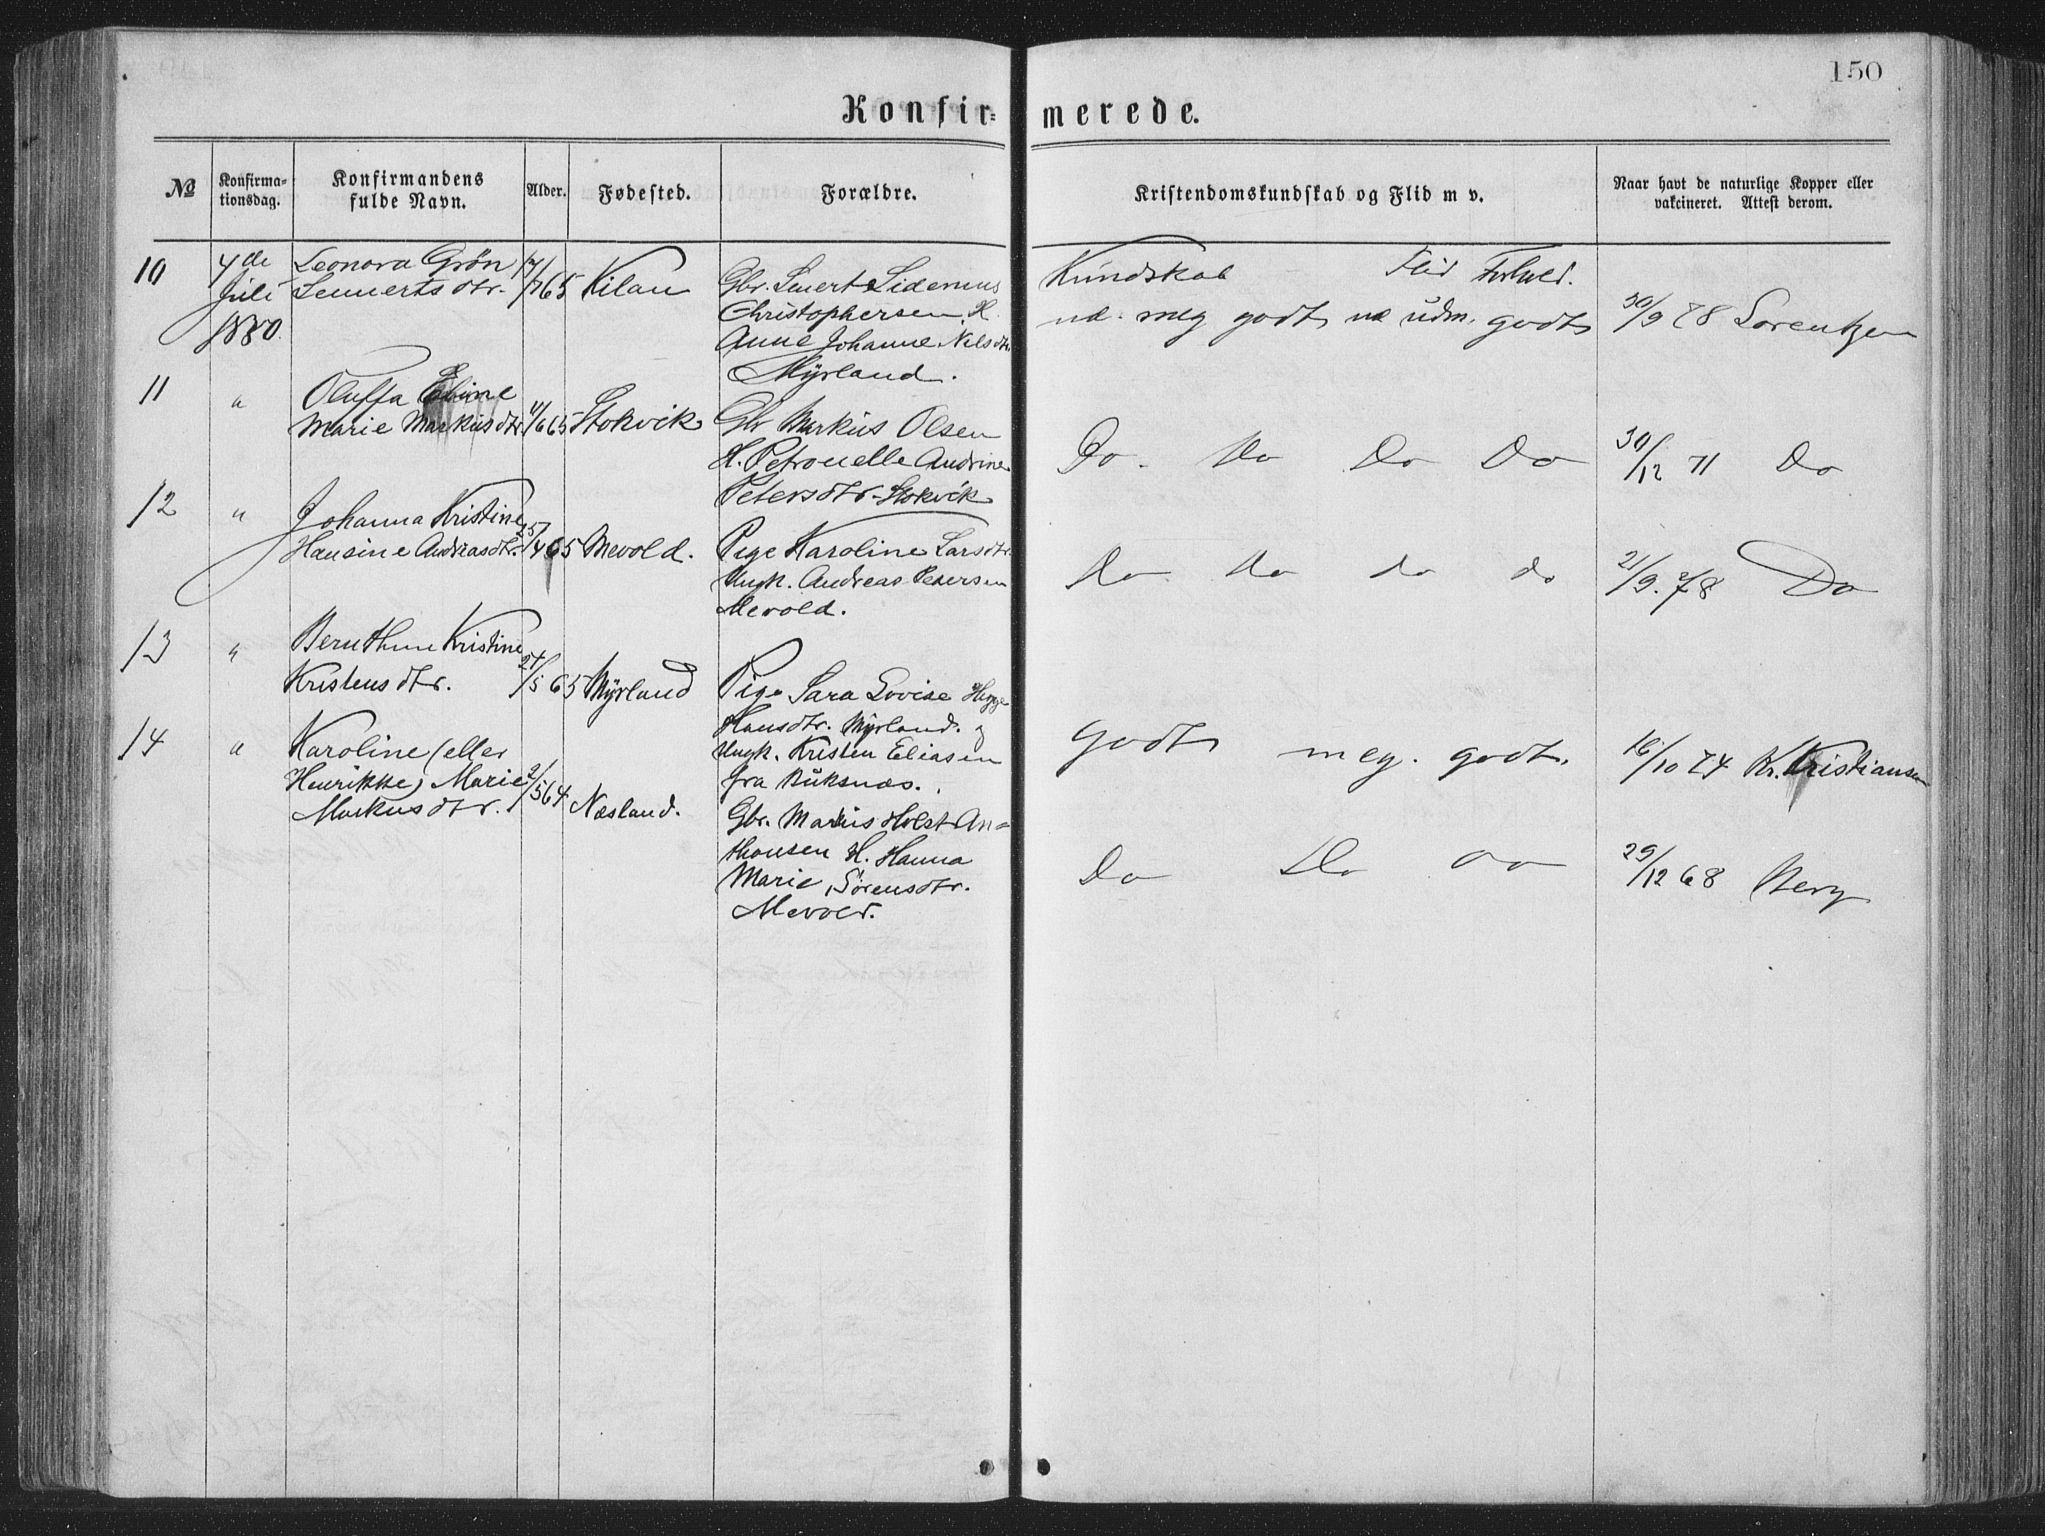 150
Konfir=merede.
No
Konfirma=
tionsdag.
Konfirmandens
fulde Navn.
Alder.
Fødested.
Forældre.
Kristendomskundskab og Flid m v.
Naar havt de naturlige Kopper eller
vakcineret. Attest derom.
10
4de
Juli
1880.
Leonora Grön
Lennertsdtr.
65 Kilan
Gbr. Lenert Sidenius
Christophersen, H.
Anne Johanne Nilsdtr.
Myrland.
Kundskab Flid Forhold.
meg godt udm. godt
30/9 78 Lorentzen
11
"
Oluffa Eline
Marie Markusdtr.
11/6 65 Stokvik
Gbr Markus Olsen
H. Petronelle Andrine
Petersdtr. Stokvik
Do. Do Do Do
30/12 71 Do
12
"
Johanna Kristine
Hansine Andreasdtr.
25/4 65 Mevold.
Pige Karoline Larsdtr.
Ungk. Andreas Pedersen
Mevold.
Do Do do do
21/9. 78 Do
13
"
Bernthine Kristine
Kristensdtr.
24/5 65 Myrland
Pige Sara Lovise
Hansdtr. Myrland. og
Ungk. Kristen Eliasen
fra Buksnæs.
godt meg. godt.
16/10 74 Kr. Kristiansen
14
"
Karoline (eller
Henrikke) Marie
Markusdtr.
2/5 64
Næsland.
Gbr. Markus Holst An=
thonsen H. Hanna
Marie Sörensdtr.
Mevold.
Do Do do
29/12 68 Berg